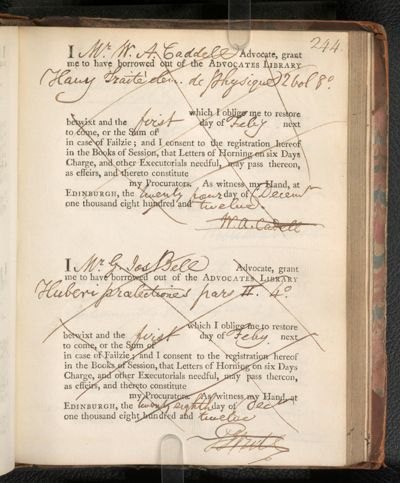 244.
I Mr. W. A. Caddell Advocate, grant
me to have borrowed out of the ADVOCATES LIBRARY
(Hauy Traité elem. de physique) 2 vol 8o.
which I oblige me to restore
betwixt and the first day of Feby next
to come, or the Sum of
in case of Failzie; and I consent to the registration hereof
in the Books of Session, that Letters of Horning on six Days
Charge, and other Executorials needful, may pass thereon,
as effeirs, and thereto constitute
my Procurators. As witness my Hand, at
EDINBURGH, the twenty four day of Decemr
one thousand eight hundred and twelve
W. A. Cadell
I Mr. G. Jos: Bell Advocate, grant
me to have borrowed out of the ADVOCATES LIBRARY
Huberi praelectiones pars II. 4o.
which I oblige me to restore
betwixt and the first day of Feby next
to come, or the Sum of
in case of Failzie; and I consent to the registration hereof
in the Books of Session, that Letters of Horning on six Days
Charge, and other Executorials needful, may pass thereon,
as effeirs, and thereto constitute
my Procurators. As witness my Hand, at
EDINBURGH, the twenty eighth day of Decr
one thousand eight hundred and twelve